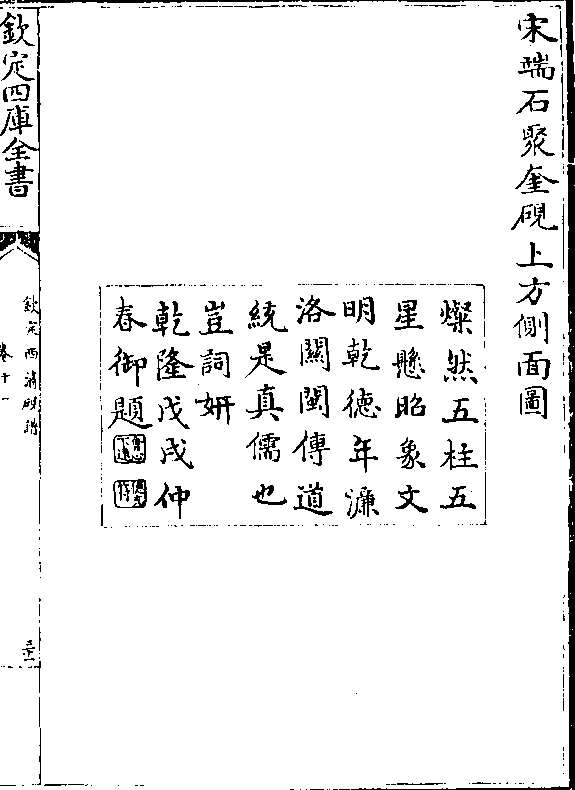 宋端石聚奎硯上方側面圖
燦然五柱五
星懸昭象文
明乾德年濂
洛關閩傳道
統是真儒也
豈詞妍
乾隆戊戌仲
春御題
欽定四庫全書
欽定西清硯譜
卷十一